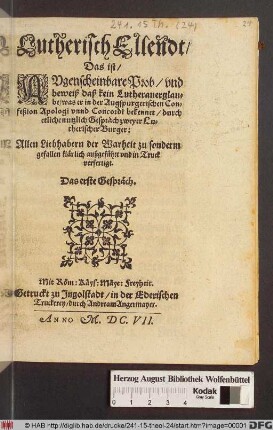 241. 15 Th. (24)
Lutherisch Ellendt/
Das ist/
Augenscheinbare Prob/ vnd
beweiß daß kein Lutheraner glau-
be/ was er in der Augspurgerischen Con-
fession Apologi vnnd Concordi bekennet/ durch
etliche nutzlich Gespräch zweyer Lu-
therischer Burger;
Allen Liebhabern der Warheit zu sonderm
gefallen klärlich außgeführt vnd in Truck
verfertigt.
Das erste Gespräch.
Mit Röm: Käys: Maye: Freyheit.
Getruckt zu Ingolstadt/ in der Ederischen
Truckerey/ durch Andream Angermayer.
ANNO M. DC. VII.
Herzog August Bibliothek Wolfenbüttel
Kodak
Gray Scale
© HAB http://diglib.hab.de/drucke/241-15-theol-24/start.htm?image=00001
DFG